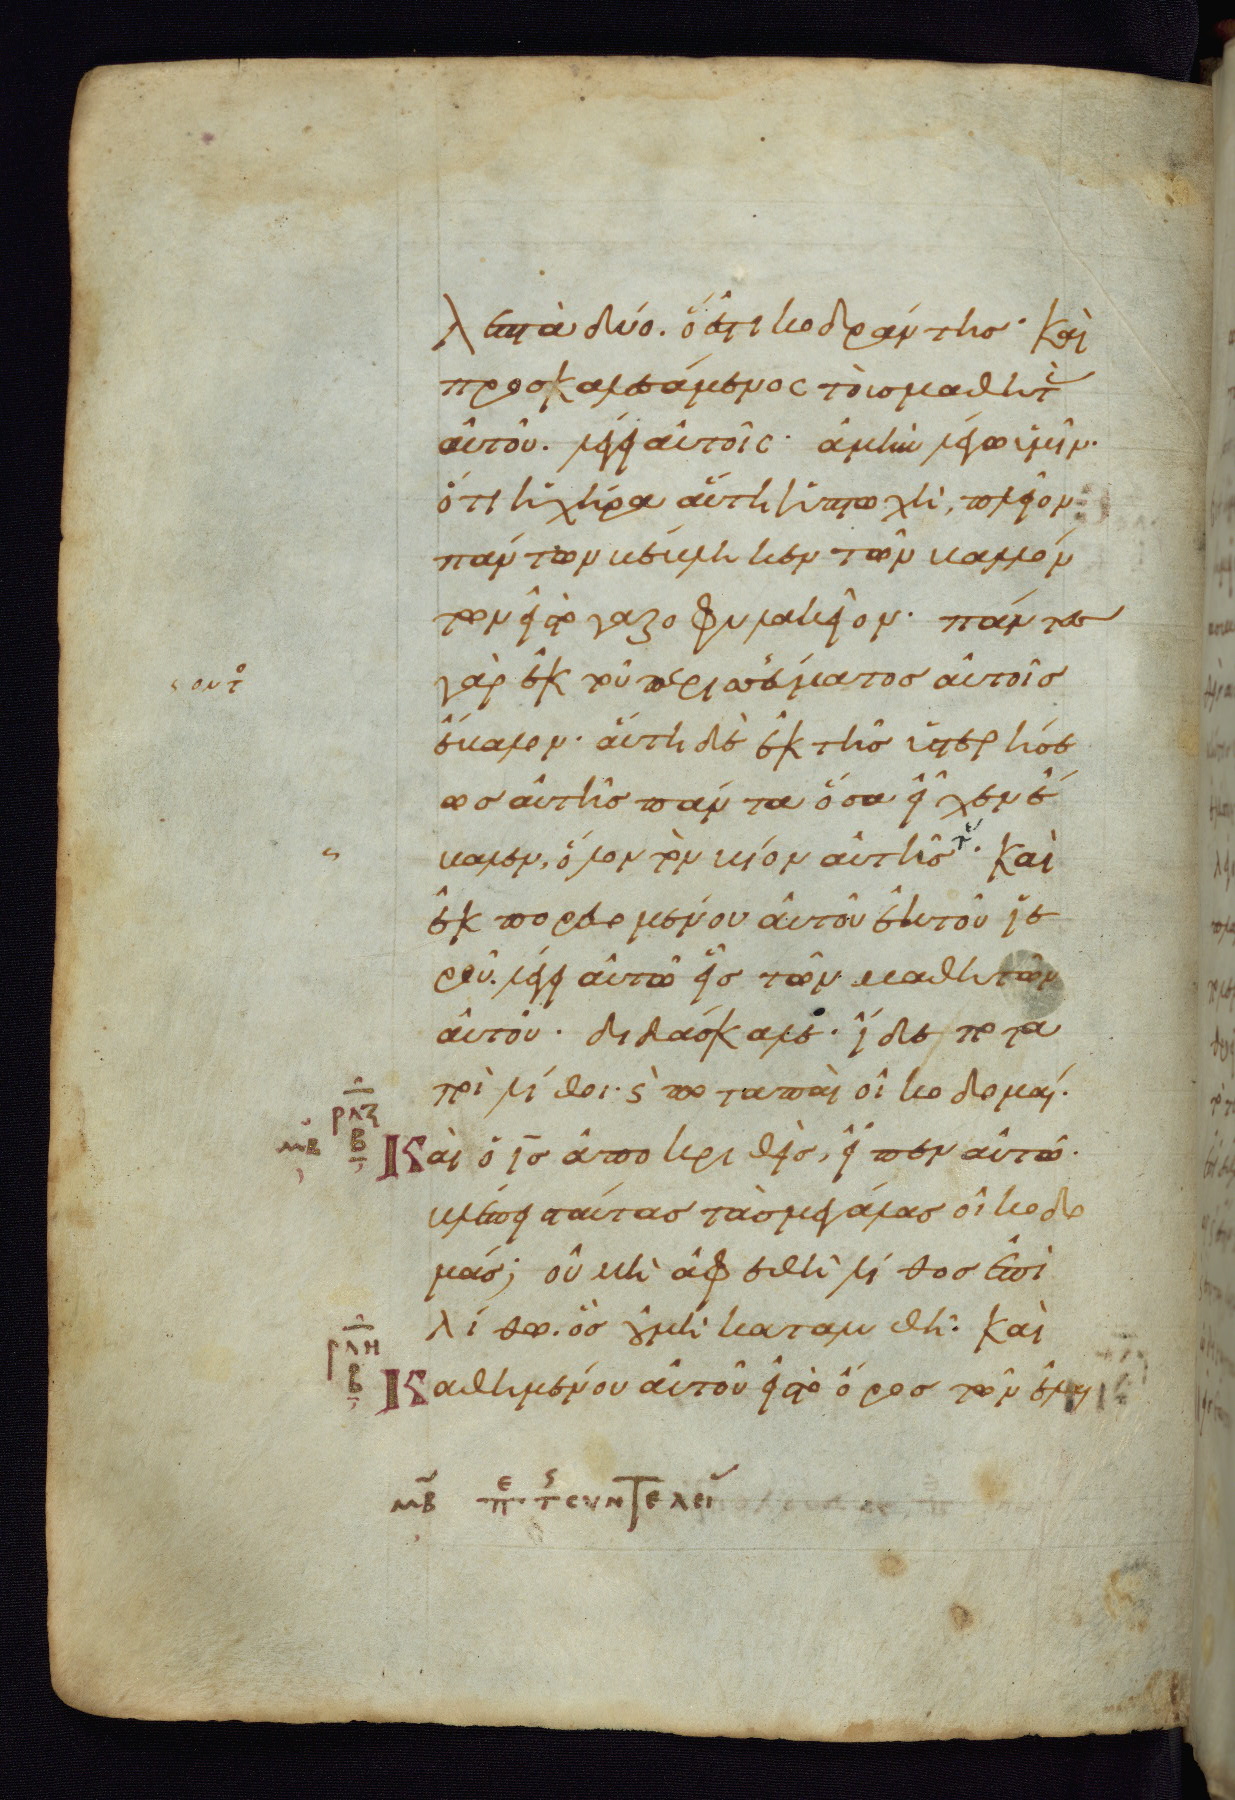 λεπτὰ δύο. ὅ ἐστι κοδράντης· Καὶ
προσκαλεσάμενος τοὺς μαθητὰς
αὐτοῦ. λέγει αὐτοῖς· ἀμὴν λέγω ὑμῖν.
ὅτι ἡ χήρα αὕτη ἡ πτωχὴ, πλεῖον
πάντων βέβληκεν τῶν βαλλόν
των εἰς τὸ γαζοφυλακεῖον· πάντες
γὰρ ἐκ τοῦ περισσεύματος αὐτοῖς
ἔβαλον· αὕτη δὲ ἐκ τῆς ὑστερήσε
ως αὐτῆς πάντα ὅσα εἶχεν ἔ
βαλεν, ὅλον τὸν βίον αὐτῆς τε· Καὶ
ἐκπορευομένου αὐτοῦ ἐκ τοῦ ἱε
ροῦ. λέγει αὐτῶ εἷς τῶν μαθητῶν
αὐτοῦ· διδάσκαλε· ἴδε ποτα
ποὶ λίθοι· ϛ ποταπαὶ οἰκοδομαί·
ρλζ
β
μβ
Καὶ ὁ ις ἀποκριθεὶς, εἶπεν αὐτῶ·
βλέπεις ταύτας τὰς μεγάλας οἰκοδο
μάς; οὐ μὴ ἀφεθῆ λίθος ἐπὶ
λίθω. ὃς οὐ μὴ καταλυθῆ· Καὶ
ρλη
β
Καθημένου αὐτοῦ εἰς τὸ ὄρος τῶν ἐλαι
μβ πε τς συντελεί